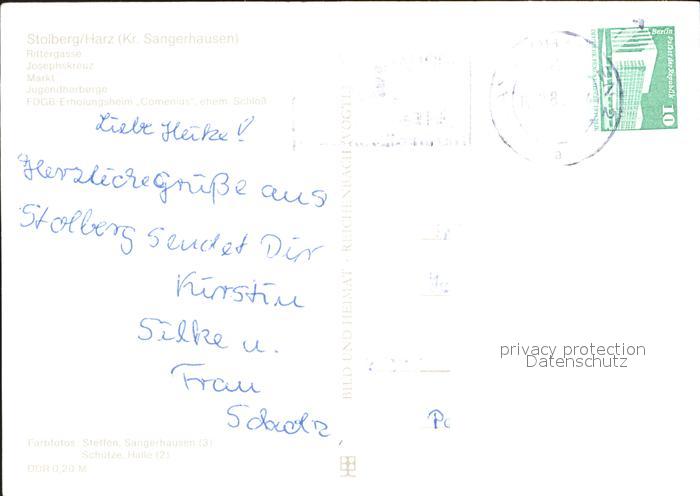 Stolberg/Harz (Kr. Sangerhausen)
Rittergasse
Josephskreuz
Markt
Jugendherberge
FDGB-Erholungsheim „Comenius", ehem. Schloß
Liebe Heike!
Herzliche Grüße aus
Stolberg sendet Dir
Kirstin
Silke u.
Frau
Schatz
Farbfotos: Steffen, Sangerhausen (3)
Schütze, Halle (2)
DDR 0,20 M
BILD UND HEIMAT · REICHENBACH
Berlin
Palast der Republik
10
privacy protection
Datenschutz